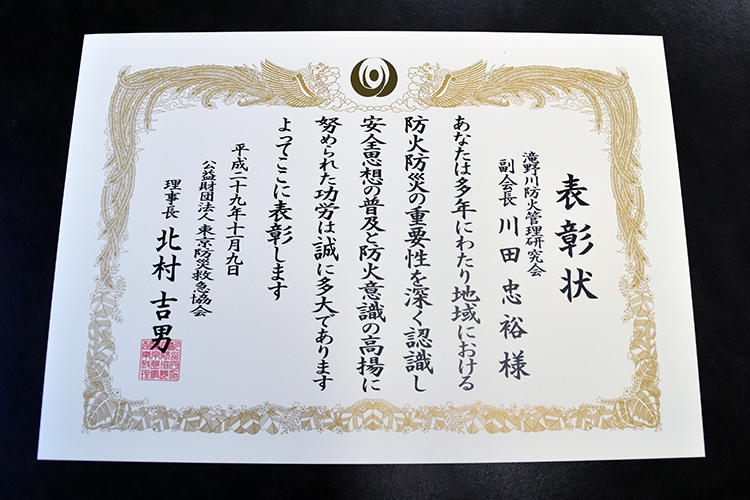 表彰状
滝野川防火管理研究会
副会長 川田忠裕様
あなたは多年にわたり地域における
防火防災の重要性を深く認識し
安全思想の普及と防火意識の高揚に
努められた功労は誠に多大であります
よってここに表彰します
平成二十九年十一月九日
公益財団法人 東京防災救急協会
理事長 北村吉男